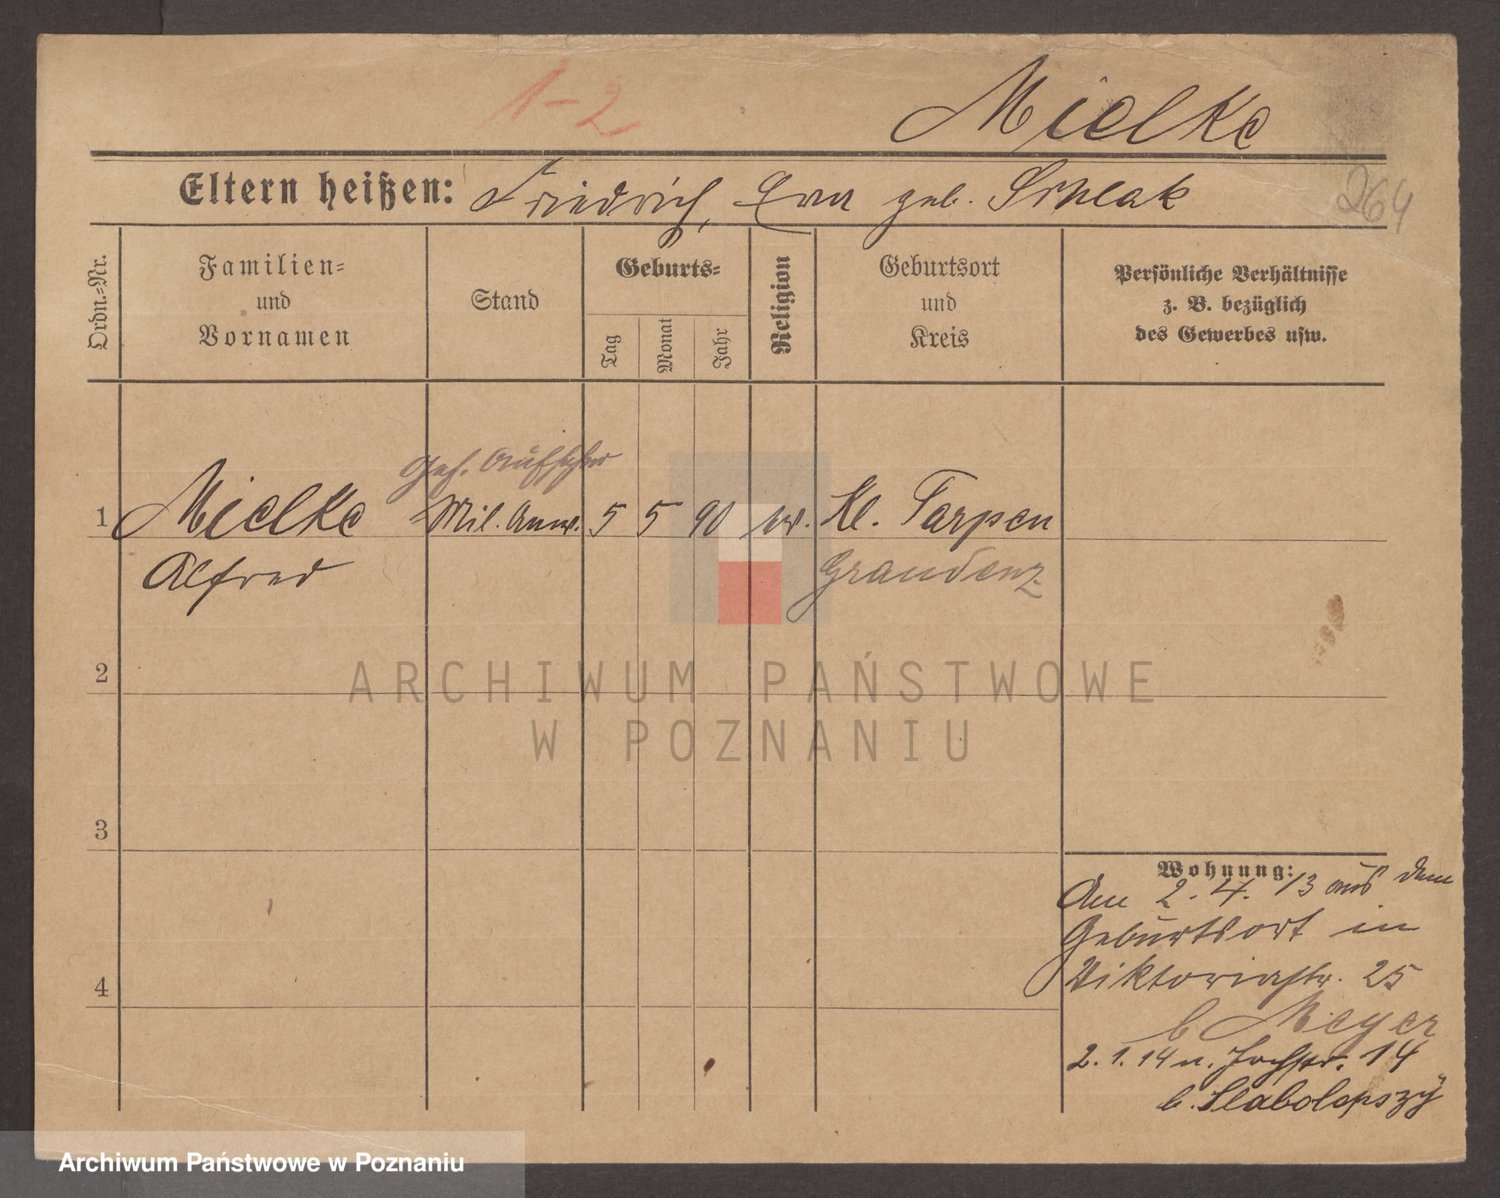 1-2
Mielke
264
Eltern heißen: Friedrich, Eva geb. Schlak
Ordn.=Nr.
Familien=
und
Vornamen
Stand
Geburts=
Tag
Monat
Jahr
Religion
Geburtsort
und
Kreis
Persönliche Verhältnisse
z. B. bezüglich
des Gewerbes usw.
Gef. Aufseher
1 Mielke Mil. Anw. 5 5 90 ev. Kl. Tarpen
Alfred Graudenz
2
3
4
Wohnung:
Am 2. 4. 13 aus dem
Geburtsort in
Viktoriastr. 25
b Meyer
2. 1. 14 n. 14
b. Slabolepszy
ARCHIWUM PAŃSTWOWE
W POZNANIU
Archiwum Państwowe w Poznaniu